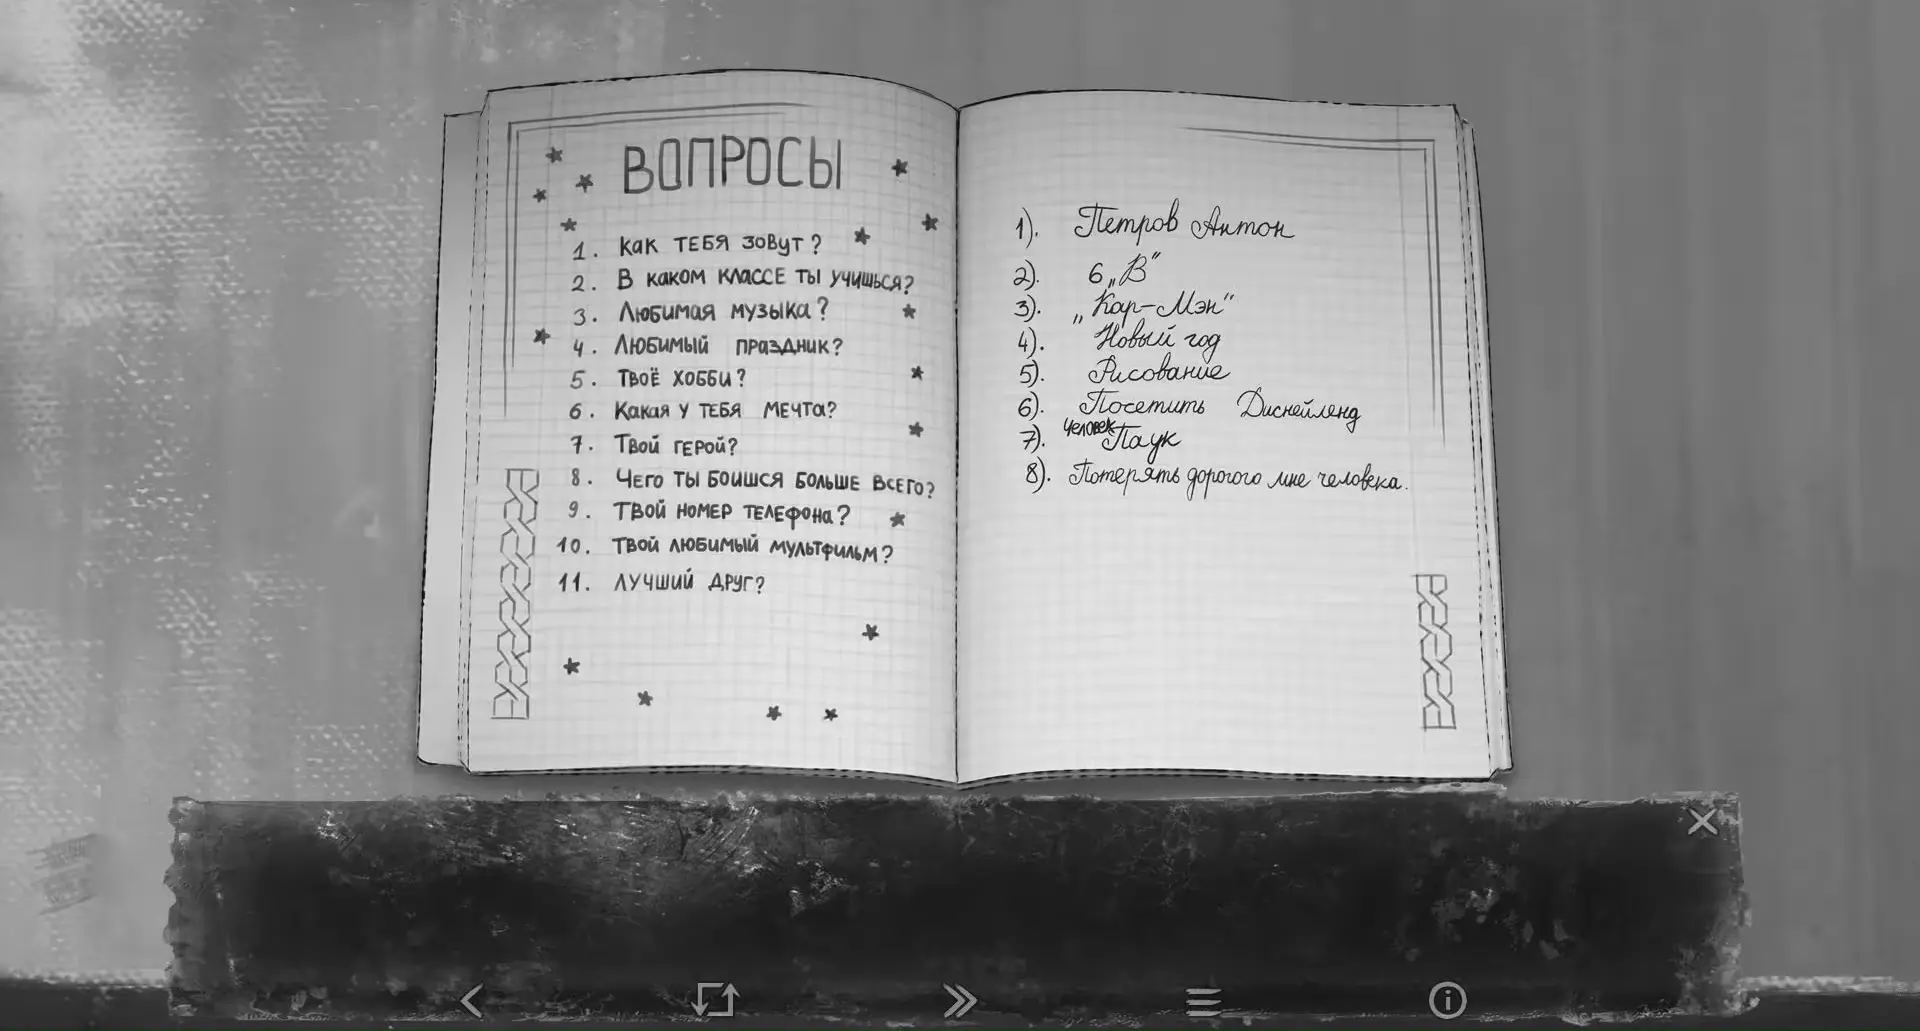 ВОПРОСЫ
1. Как тебя зовут?
2. В каком классе ты учишься?
3. Любимая музыка?
4. Любимый праздник?
5. Твоё хобби?
6. Какая у тебя мечта?
7. Твой герой?
8. Чего ты боишся больше всего?
9. Твой номер телефона?
10. Твой любимый мультфильм?
11. Лучший друг?
1). Петров Антон
2). 6 „В“
3). „Кар-Мэн“
4). Новый год
5). Рисование
6). Посетить Диснейленд
7). Человек Паук
8). Потерять дорогого мне человека.